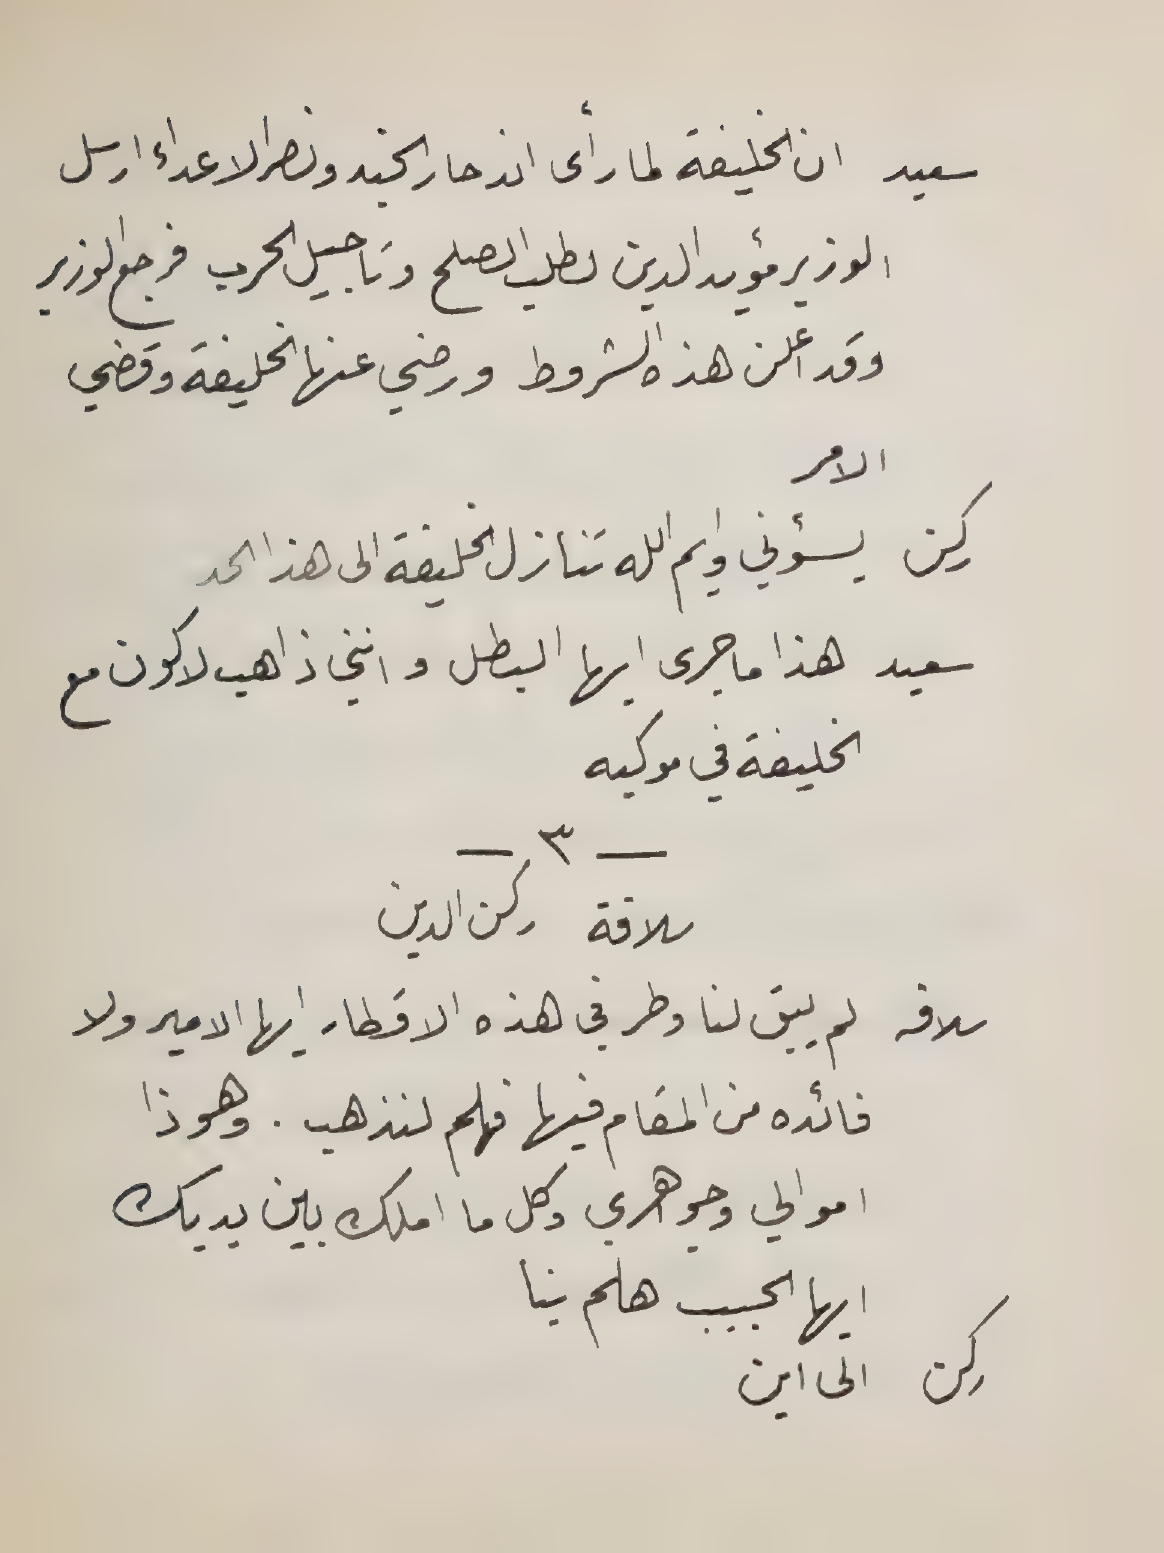 سعيد ان الخليفة لما رأى اندحار الجند ونصر الاعداء ارسل
الوزير مؤيد الدين لطلب الصلح وتاجيل الحرب فرجع الوزير
وقد اعلن هذه الشروط ورضي عنها الخليفة وقضي
الامر
ركن يسؤني وايم الله تنازل الخليفة الى هذا الحد
سعيد هذا ما جرى ايها البطل وانني ذاهب لاكون مع
الخليفة في موكبه
— ٣ —
سلافة ركن الدين
سلافه لم يبق لنا وطر في هذه الاقطار ايها الامير ولا
فائده من المقام فيها فهلم لنذهب . وهوذا
اموالي وجوهري وكل ما املك بين يديك
ايها الحبيب هلم بنا
ركن الى اين